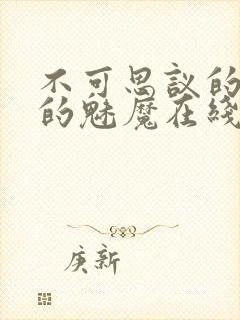 不可思议的
的魅魔在线
庚新